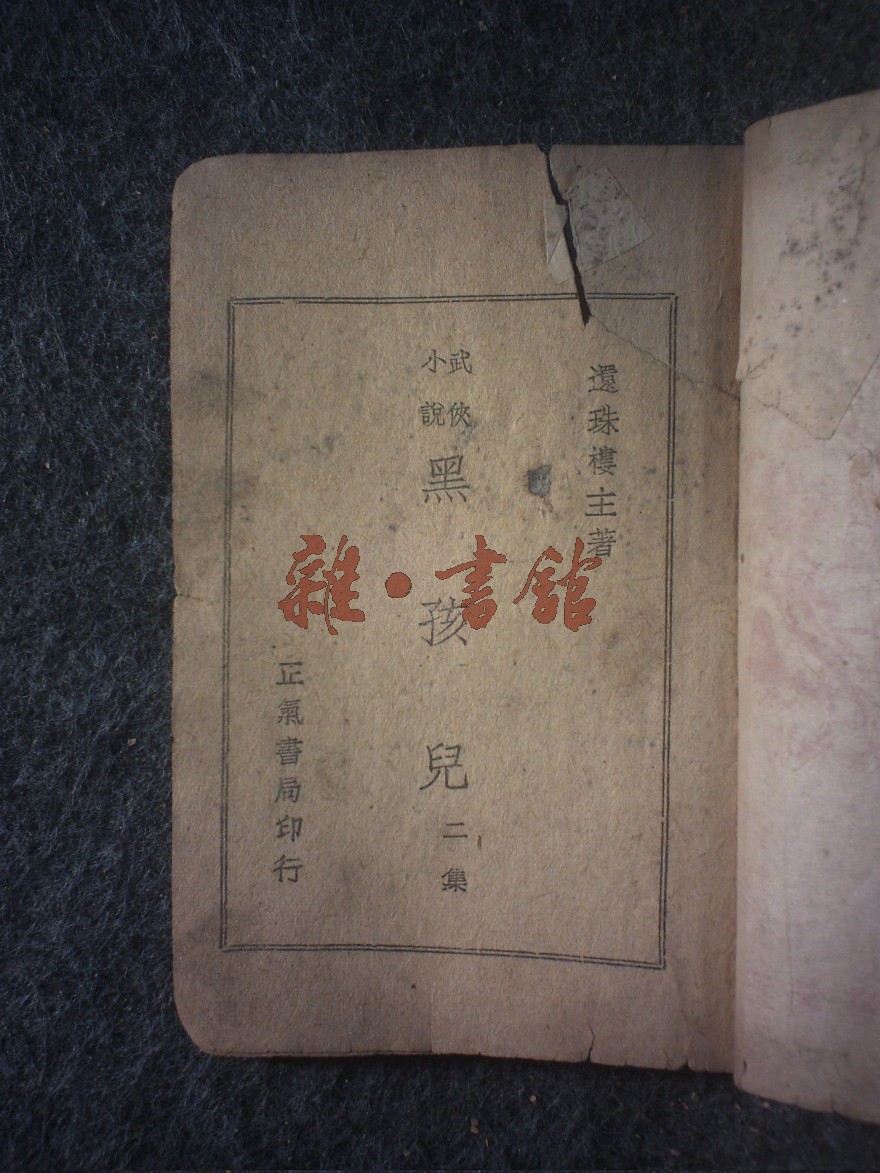 還珠樓主著
武俠
小說
黑孩兒
二集
正氣書局印行
雜·書館